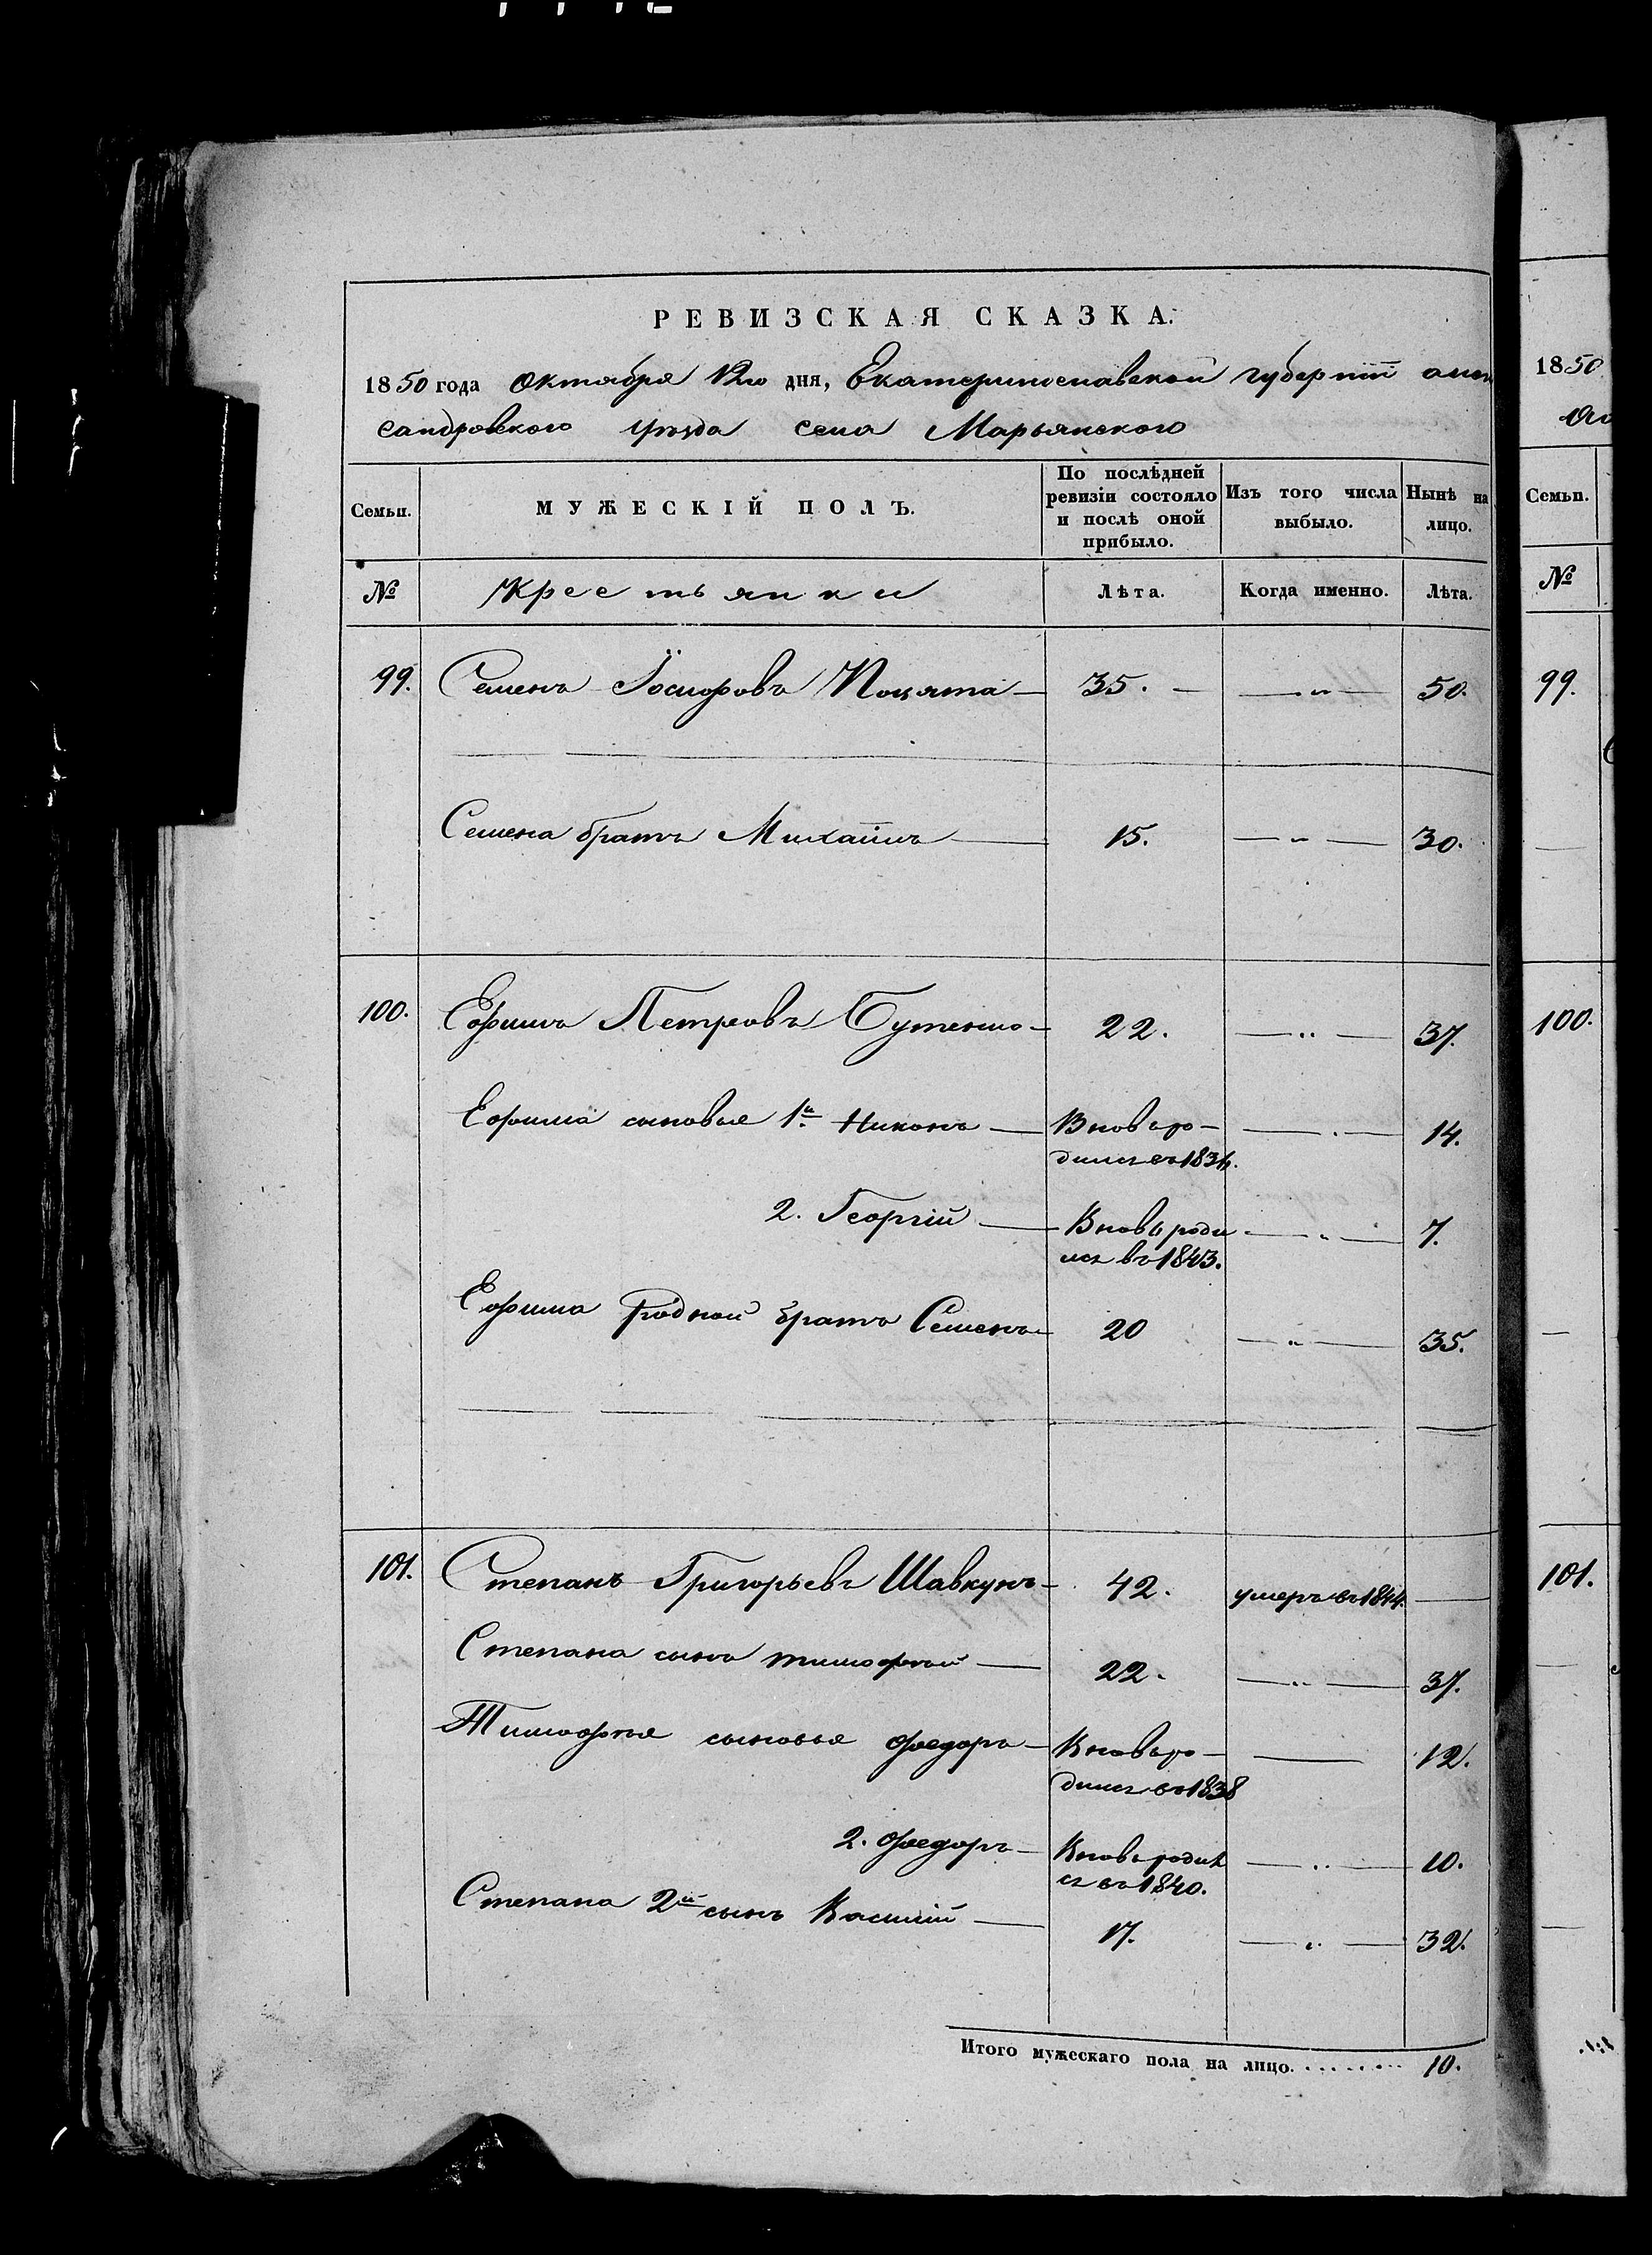 РЕВИЗСКАЯ СКАЗКА.
1850 года Октября 12го дня, Екатеринославской губерніи алек
сандровского уѣзда села Марьянского
Семьи. МУЖЕСКІЙ ПОЛЪ. По послѣдней ревизіи состояло и послѣ оной прибыло. Изъ того числа выбыло. Нынѣ на лицо.
№ Крестьянки Лѣта. Когда именно. Лѣта.
99. Семенъ Ѳедоровъ 35. — — „ — 50.
Семена братъ Михаилъ — 15. — „ — 30.
100. Ефимъ Петровъ Бутенко — 22. — „ — 37.
Ефима сыновья 1й Никонъ — Вновь ро-
дился въ 1836. — „ — 14.
2. Георгій — Вновь роди
лся въ 1843. — „ — 7.
Ефима родной братъ Семенъ — 20 — „ — 35.
101. Степанъ Григорьевъ Шавкунъ — 42. умеръ въ 1844. —
Степана сынъ тимофѣй — 22. — „ — 37.
Тимофѣя сыновья федоръ — Вновь ро-
дился въ 1838 — 12.
2. федоръ — Вновь родил
ся въ 1840. — „ — 10.
Степана 2й сынъ Василій — 17. — „ — 32.
Итого мужескаго пола на лицо. . . . . . . . 10.
1850
Семьи.
№
99.
100.
101.